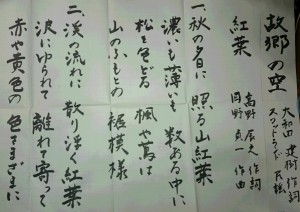 故郷の空
大和田 建樹 作詞
スコットランド 民謡
紅葉
高野 辰之 作詞
岡野 貞一 作曲
一.秋の夕日に 照る山紅葉
濃いも薄いも 数ある中に
松を色どる 楓や蔦は
山のふもとの 裾模様
二.渓の流れに 散り浮く紅葉
波にゆられて 離れて寄って
赤や黄色の 色さまざまに